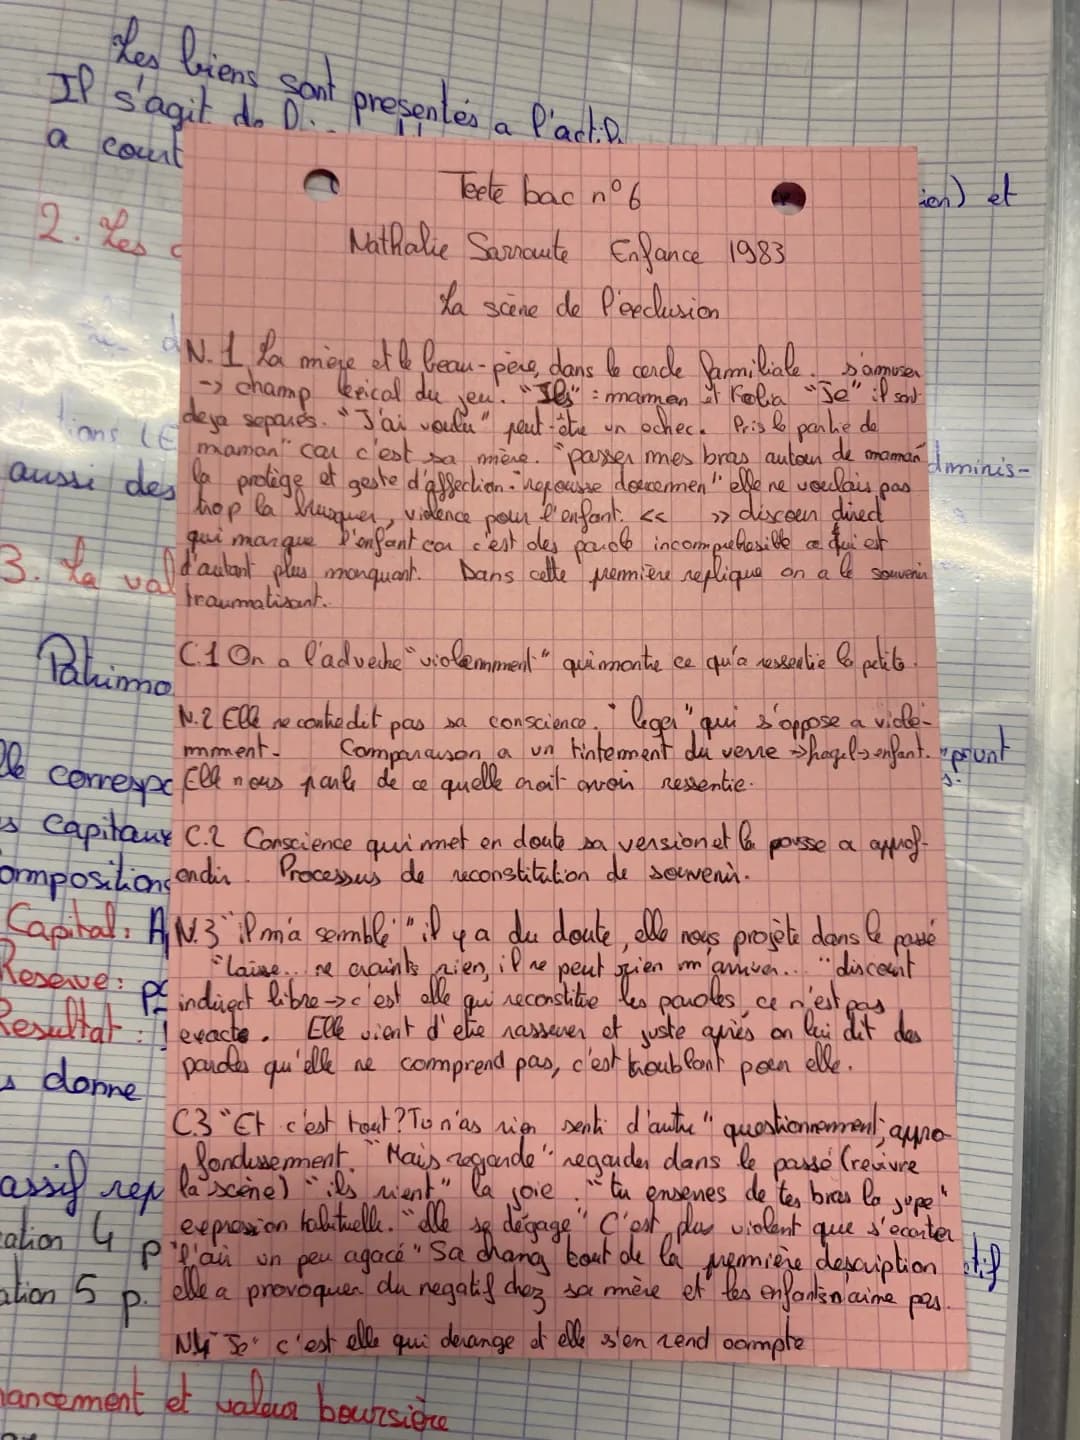 Les biens sont presentés a l'actif
Il s'agit de
a court
ien) et
2. Les
aussi des
dminis-
3. La val
Patrimo
lle corresp
s capitaux
omposition
Capital: A
Reserve: p
Resultat :
s donne
assif rep
cation 4 p
ation 5 p.
tif
nancement et valeur boursière
Texte bac n°6
Nathalie Sarraute Enfance 1983
La scène de l'exclusion
N.1 La mère et le beau-père, dans le cercle familiale. s'amuser
-> champ lexical du jeu. "Ils" : maman et Kolia "Je" il sont
deja separés. "J'ai voulu" peut-être un echec. Pris le partie de
maman" car c'est sa mère. "passer mes bras autour de maman
la protège et geste d'affection. "repousse doucemen" elle ne voulais pas
trop la brusquer, violence pour l'enfant. << >> discour direct
qui marque l'enfant car c'est des parole incomprehesible ce qui est
d'autant plus marquant. Dans cette première replique on a le souvenir
traumatisant.
C.1 On a l'adverbe "violemment" qui montre ce qu'a ressentie la petite.
N.2 Elle ne contredit pas sa conscience. "leger" qui s'oppose a viole-
mment. Comparaison a un tintement du verre ->fragel->enfant.
Elle nous parle de ce quelle croit avoir ressentie.
C.2 Conscience qui met en doute sa version et la pousse a approf-
ondir. Processus de reconstitution de souvenir.
N.3 "il m'a semblé" il y a du doute, elle nous projète dans le passé
"laisse... ne craints rien, il ne peut rien m'arriver... "discourt
indirect libre -> c'est elle qui reconstitue les paroles, ce n'est pas
exacte. Elle vient d'etre rassurer et juste après on lui dit des
paroles qu'elle ne comprend pas, c'est troublant pour elle.
C.3 "Et c'est tout? Tu n'as rien senti d'autre" questionnement, appro-
fondissement. "Mais regarde" regarder dans le passé (revivre
la scène) "ils rient" la joie. "tu enserres de tes bras la jupe"
expression habituelle. "elle se dégage" C'est plus violent que s'écarter
"l'air un peu agacé" Sa chang tout de la première description
elle a provoquer du negatif chez sa mère et les enfants n'aime pas.
N4 "Je" c'est elle qui derange et elle s'en rend compte